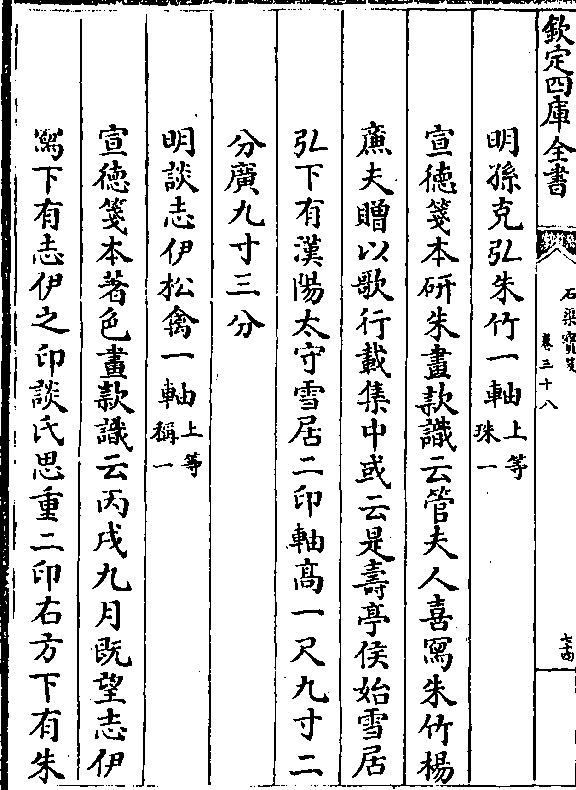 欽定四庫全書
石渠寶笈
卷三十八
七四
明孫克弘朱竹一軸上等珠一
宣徳箋本研朱畫款識云管夫人喜寫朱竹楊
亷夫贈以歌行載集中或云是壽亭侯始雪居
弘下有漢陽太守雪居二印軸髙一尺九寸二
分廣九寸三分
明談志伊松禽一軸上等稱一
宣徳箋本著色畫款識云丙戌九月既望志伊
寫下有志伊之印談氏思重二印右方下有朱